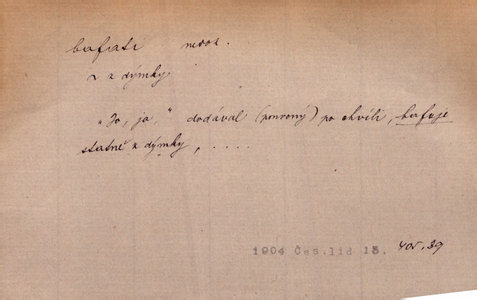 bafati nedok.
~ z dýmky
„Jo, jo," dodával (ponrový) po chvíli, bafaje
statně z dýmky, . . . .
1904 Čes. lid 13. 405, 39